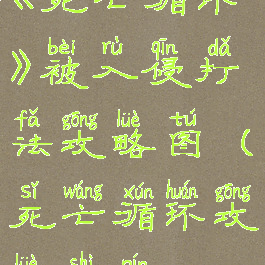 《死亡循环
》被入侵打
bèi rù qīn dǎ
法攻略图（
fǎ gōng lüè tú
死亡循环攻
sǐ wáng xún huán gōng
lüè shì pín